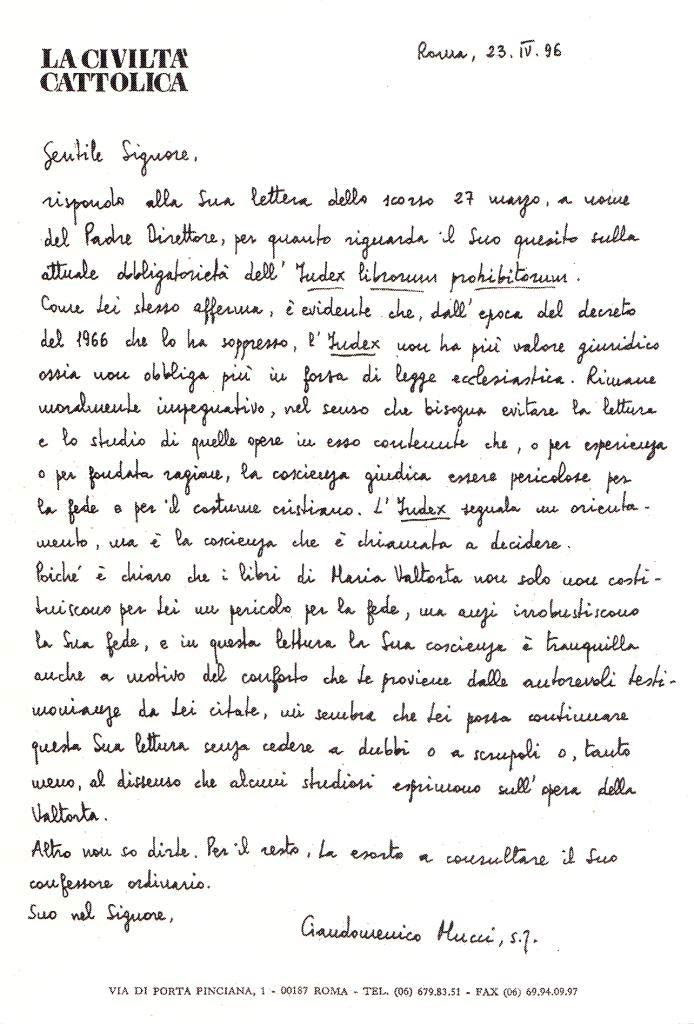 LA CIVILTÀ
CATTOLICA
Roma, 23.IV.96
Gentile Signore,
rispondo alla Sua lettera dello scorso 27 marzo, a nome
del Padre Direttore, per quanto riguarda il Suo quesito sulla
attuale obbligatorietà dell'Index librorum prohibitorum.
Come Lei stesso afferma, è evidente che, dall'epoca del decreto
del 1966 che lo ha soppresso, l'Index non ha più valore giuridico
ossia non obbliga più in forza di legge ecclesiastica. Rimane
moralmente impegnativo, nel senso che bisogna evitare la lettura
e lo studio di quelle opere in esso contenute che, o per esperienza
o per fondata ragione, la coscienza giudica essere pericolose per
la fede o per il costume cristiano. L'Index segnala un orienta-
mento, ma è la coscienza che è chiamata a decidere.
Poiché è chiaro che i libri di Maria Valtorta non solo non costi-
tuiscono per Lei un pericolo per la fede, ma anzi irrobustiscono
la Sua fede, e in questa lettura la Sua coscienza è tranquilla
anche a motivo del conforto che Le proviene dalle autorevoli testi-
monianze da Lei citate, mi sembra che Lei possa continuare
questa Sua lettura senza cedere a dubbi o a scrupoli o, tanto
meno, al dissenso che alcuni studiosi esprimono sull'opera della
Valtorta.
Altro non so dirLe. Per il resto, La esorto a consultare il Suo
confessore ordinario.
Suo nel Signore,
Giandomenico Mucci, s.j.
VIA DI PORTA PINCIANA, 1 - 00187 ROMA - TEL. (06) 679.83.51 - FAX (06) 69.94.09.97